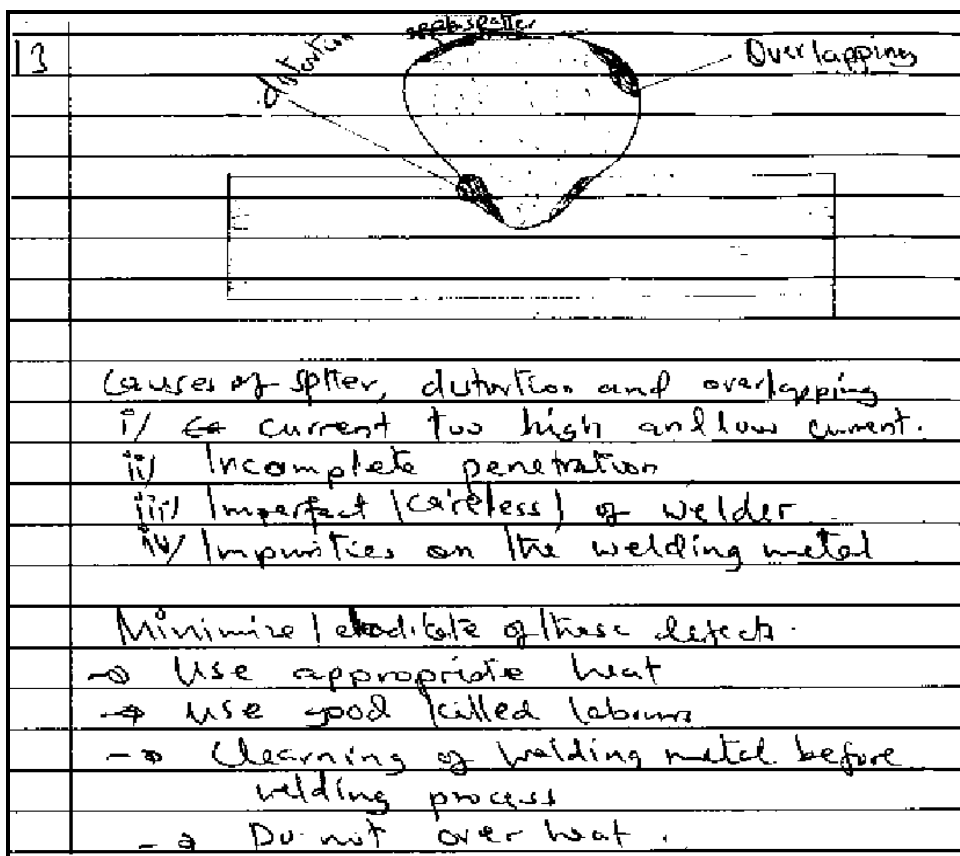 spatter
distortion
13
Overlapping
Causes of sptter, dutortion and overlapping
i/ current too high and low current.
ii/ Incomplete penetration
iii/ Imperfect (careless) of welder
iv/ Impurities on the welding metal
Minimize / of these defects.
→ Use appropriate heat
→ Use good killed labours
→ Clearning of welding metal before
welding process
→ Do not over heat.